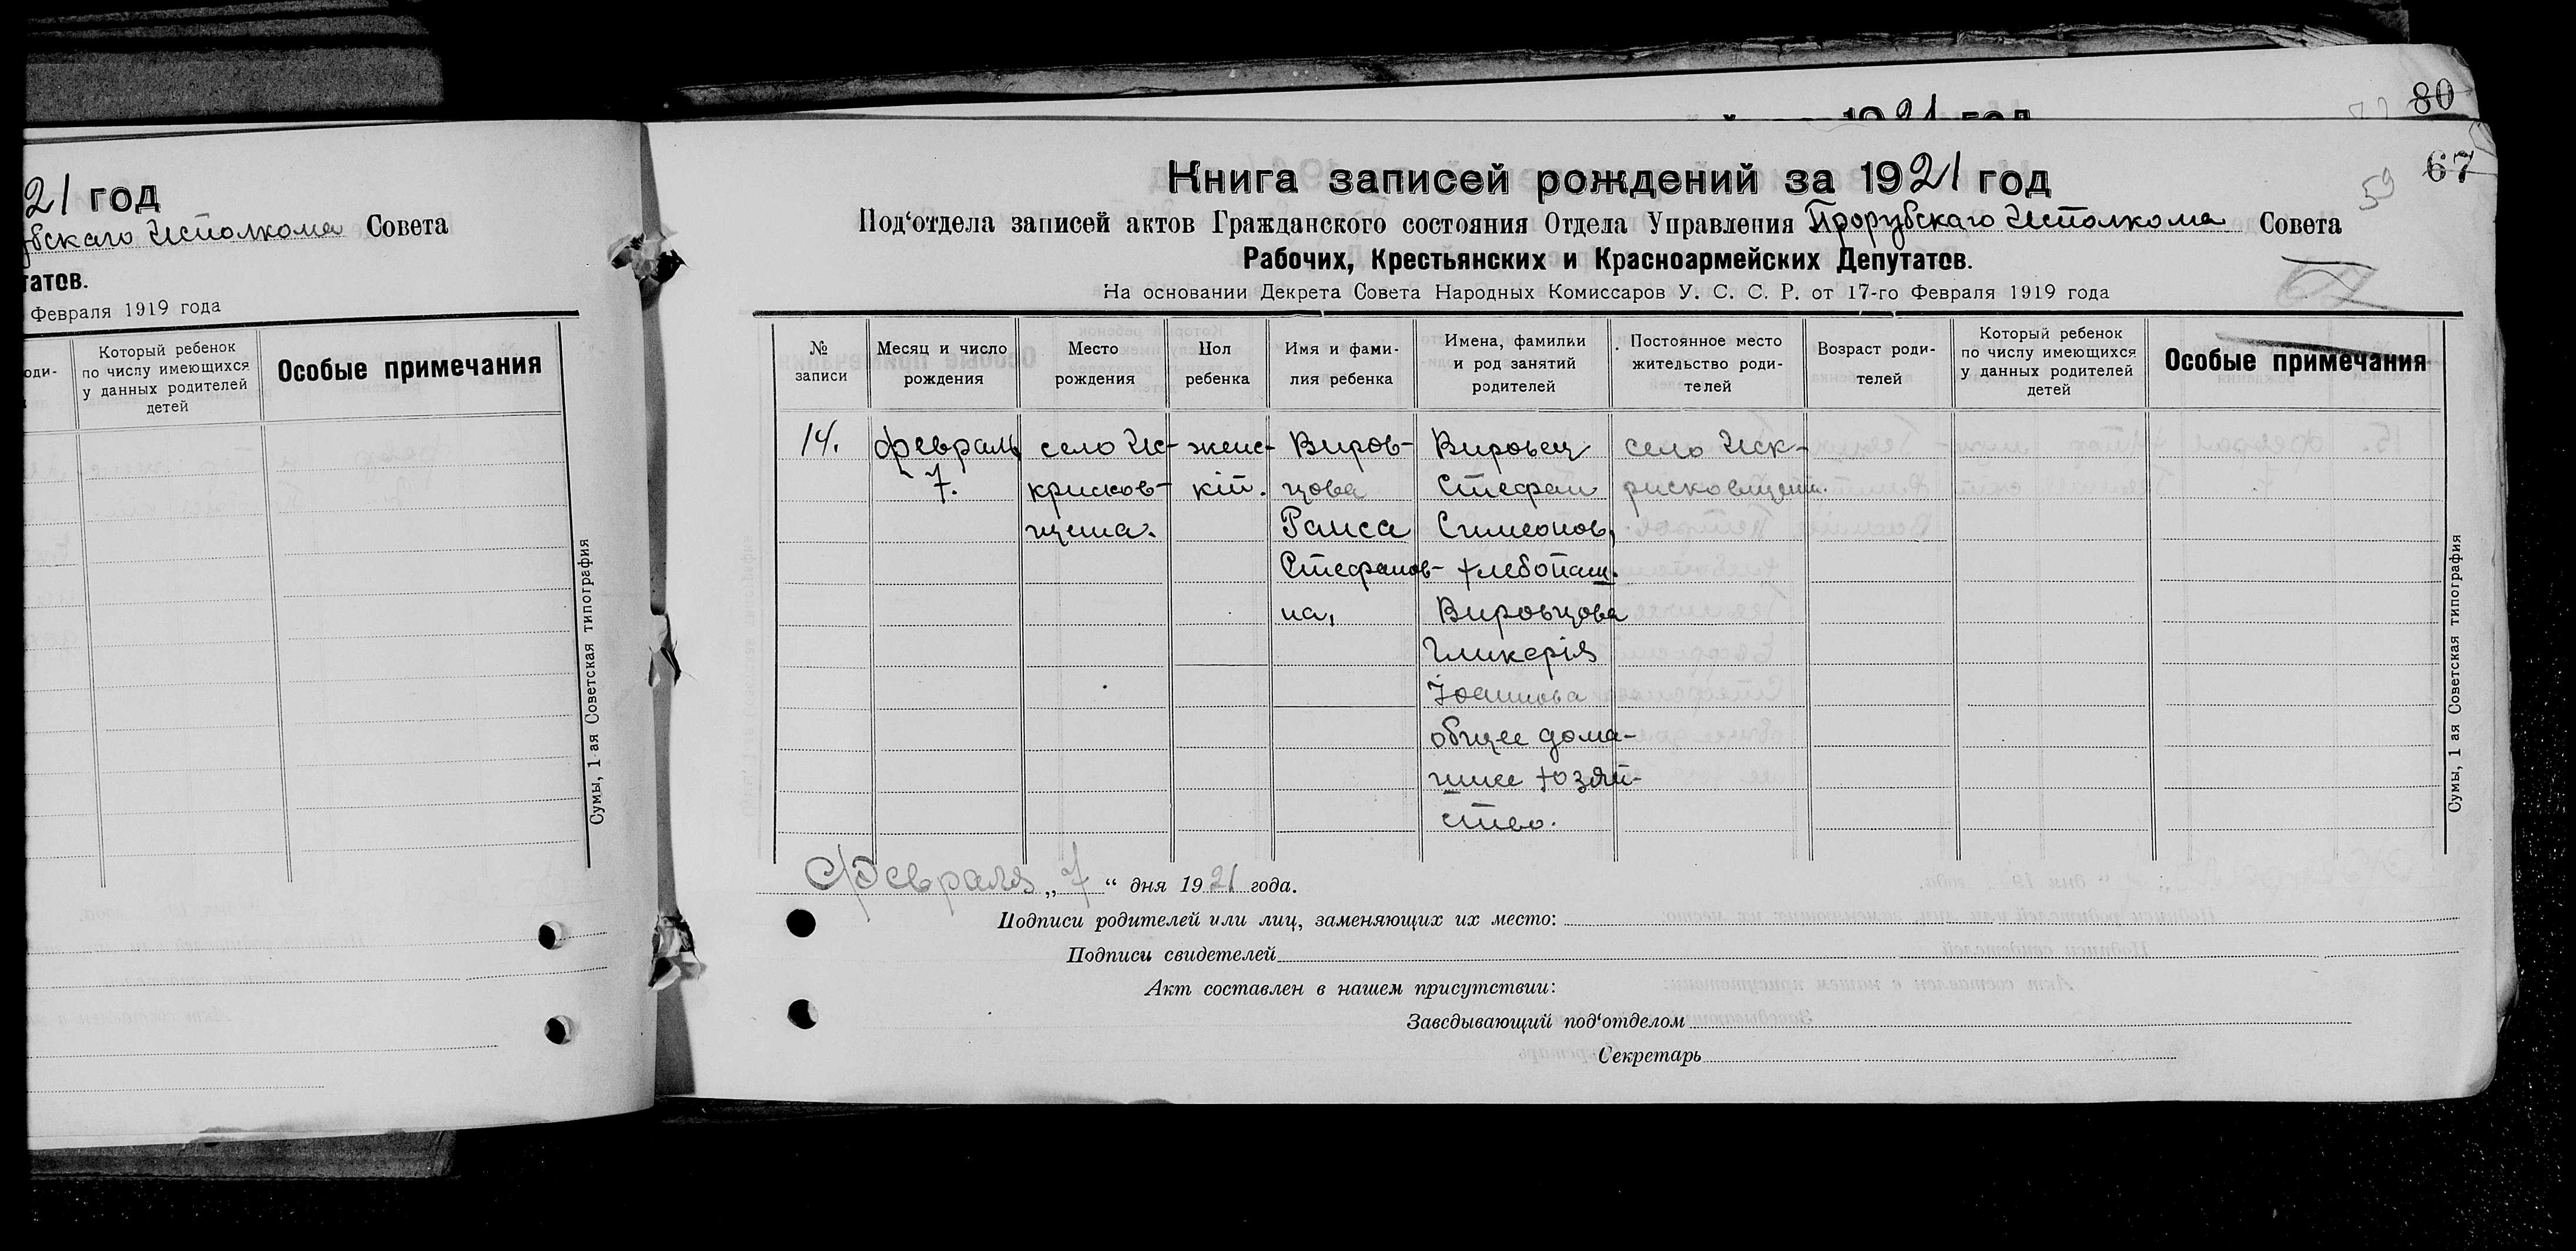 21 год
бскаго Исполкома Совета
татов.
Февраля 1919 года
оди-
Который ребенок
по числу имеющихся
у данных родителей
детей
Особые примечания
Сумы, 1-ая Советская типография
1921 год
80
67
59
Книга записей рождений за 1921 год
Под‘отдела записей актов Гражданского состояния Отдела Управления Прорубскаго Исполкома Совета
Рабочих, Крестьянских и Красноармейских Депутатов.
На основании Декрета Совета Народных Комиссаров У. С. С. Р. от 17-го Февраля 1919 года
№
записи
Месяц и число
рождения
Место
рождения
Пол
ребенка
Имя и фами-
лия ребенка
Имена, фамилии
и род занятий
родителей
Постоянное место
жительство роди-
телей
Возраст роди-
телей
Который ребенок
по числу имеющихся
у данных родителей
детей
Особые примечания
14.
февраль
7.
село Ис-
крисков-
щина.
женс-
кій.
Виров-
цова
Раиса
Стефанов-
на,
Вировец
Стефан
Симеонов,
хлебопаш.
Вировцова
Гликерія
Іоаннова
общее дома-
шнее хозяй-
ство.
село Иск-
рисковщина.
Февраля „ 7 “ дня 1921 года.
Подписи родителей или лиц, заменяющих их место:
Подписи свидетелей
Акт составлен в нашем присутствии:
Заведывающий под‘отделом
Секретарь
Сумы, 1 ая Советская типография